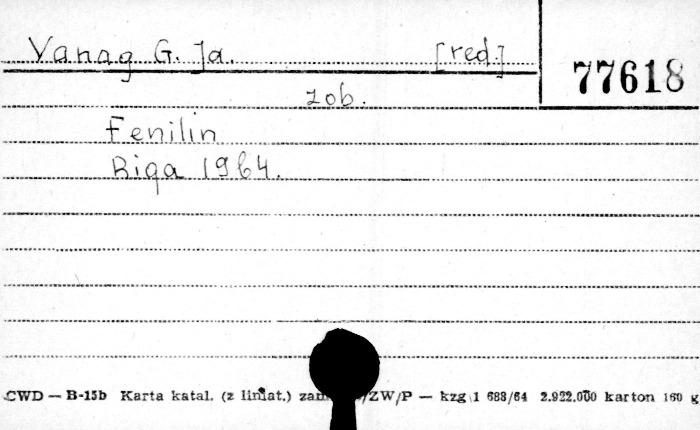 Vanag G. Ja. [red.]
77618
zob.
Fenilin
Riga 1964.
CWD — B-15b Karta katal. (z liniat.) /ZW/P — kzg 1 688/64 2.922.000 karton 160 g